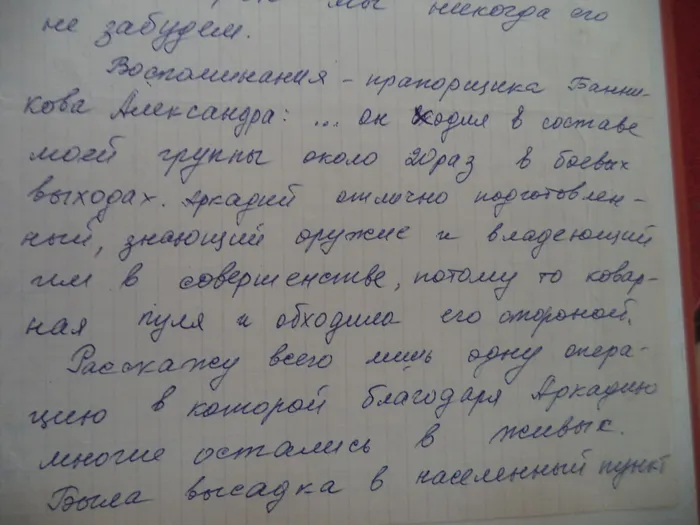 мы никогда его
не забудем.
Воспоминания - прапорщика Банни-
кова Александра: ... он ходил в составе
моей группы около 20 раз в боевых
выходах. Аркадий отлично подготовлен-
ный, знающий оружие и владеющий
им в совершенстве, потому то ковар-
ная пуля и обходила его стороной.
Расскажу всего лишь одну опера-
цию в которой благодаря Аркадию
многие остались в живых.
Была высадка в населенный пункт